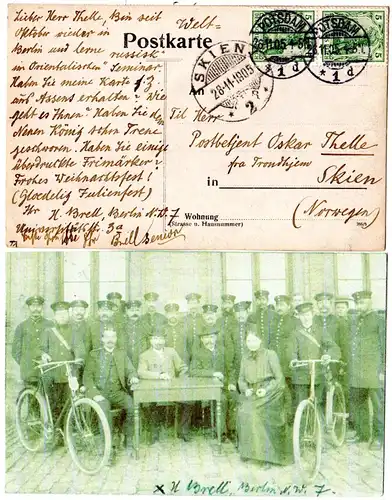 Lieber Herr Thelle, Bin seit
Oktober wieder in
Berlin und lerne russisch
im Orientalischen Seminar.
Haben Sie meine Karte
aus Assens erhalten? Wie
geht es Ihnen? Haben Sie dem
Neuen König schon Treue
geschworen. Haben Sie einige
überdruckte Frimärker?
Frohes Weihnachtsfest!
(Gloedelig Julienfest)
Ihr H. Brell, Berlin N.W. 7
Universitätsstr. 3a
Brell senior
Welt-
Postkarte
SKIEN
28-11-1905
2
POTSDAM
26.11.05
*1d
POTSDAM
11.05
*1d
5
5
Til Herr
Postbetjent Oskar Thelle
fra Trondhjem
in Skien
(Norwegen)
Wohnung
(Strasse u. Hausnummer)
x H Brell, Berlin N.W. 7.